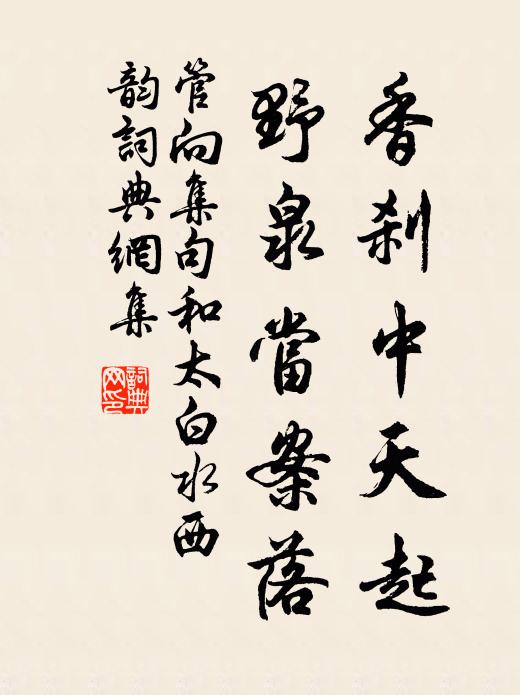 香刹中天起
野泉當案落
管向集句和太白水西
韵詞典網集
詞典网印